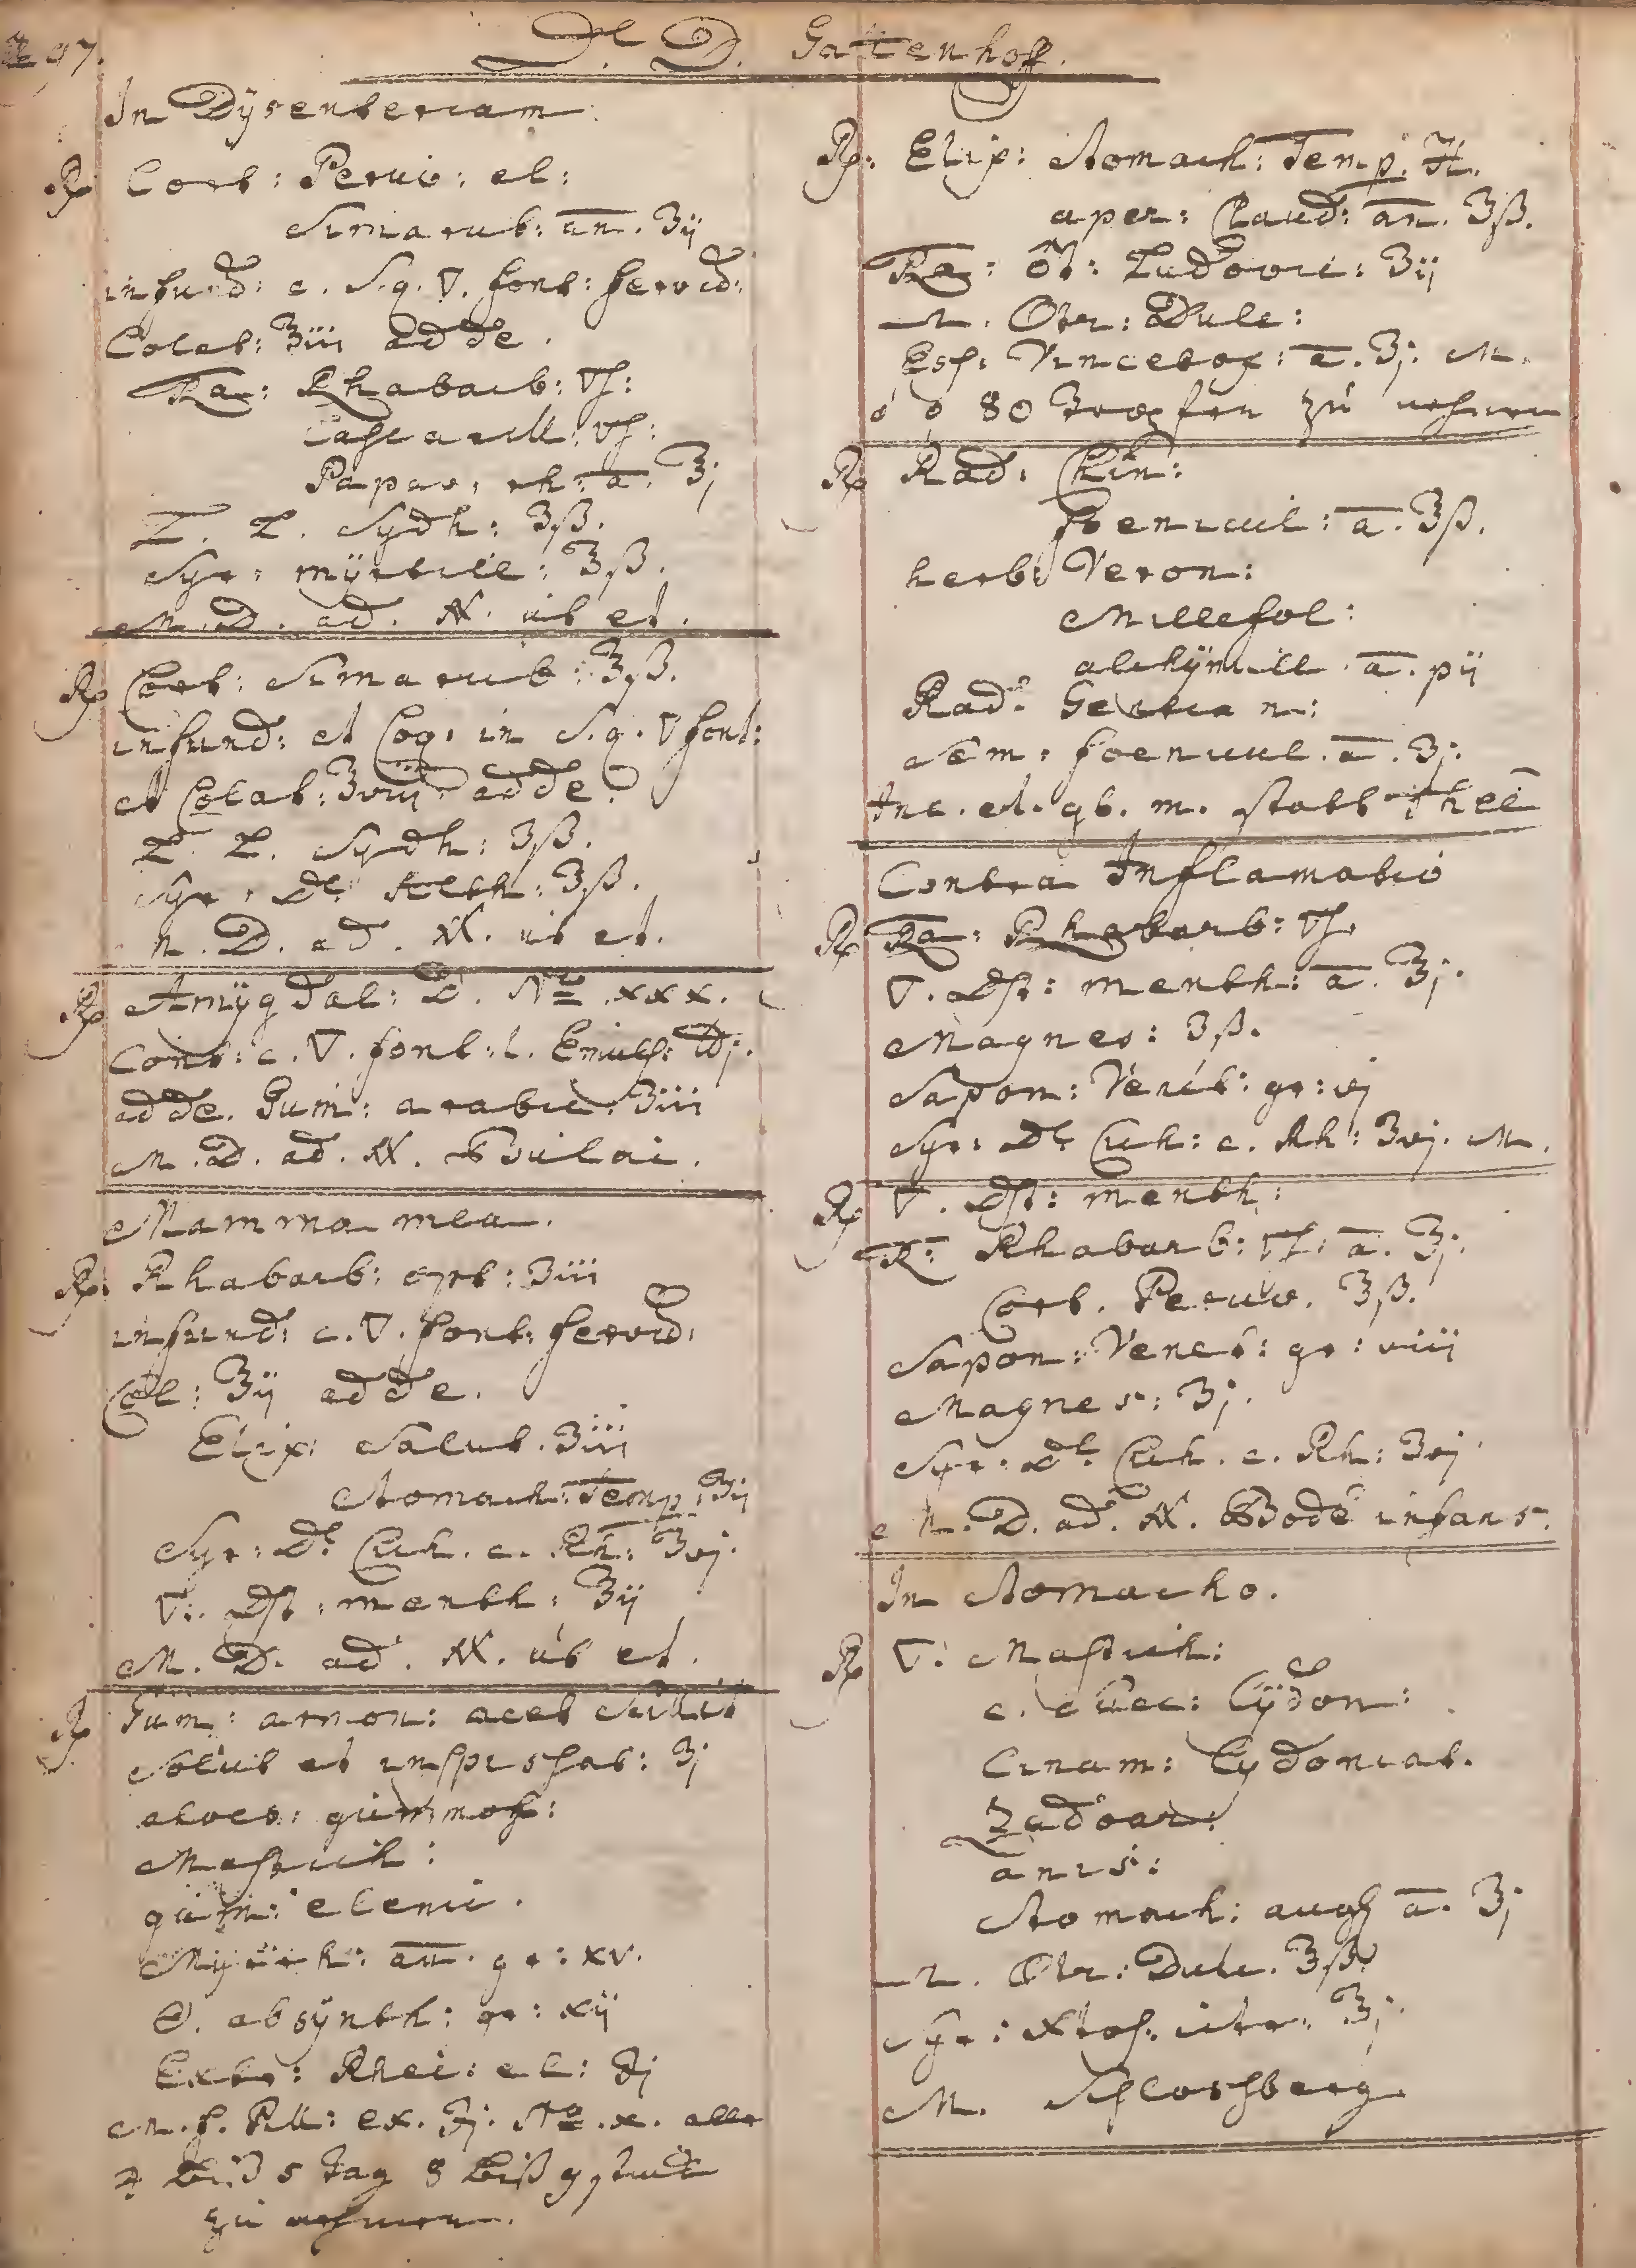 97.
D. D. Gattenhoff.
In Dÿsenteriam
Rp Cort: Peruv: el:
Simarub: an. ʒij
infund: c. S.q. ▽. font: fervid:
Colat: ℥iii adde.
Ra: Rhabarb: ▽s:
Cascarill: ▽s:
Papav: rh: a. ℥j
L. L. Sydh: ʒß.
Syr: mÿrtill: ℥ß.
M. D. ad. N. ut et.
Rp Cort: Simarub: ℥ß.
infund: et Coq: in S.q. ▽ font:
et Colat: ℥viij adde.
L. L. Sydh: ʒß.
Syr: De Alth: ℥ß.
M. D. ad. N. ut et.
Rp Amÿgdal: D. No. xxx.
Cont: c. ▽. font: l. Emuls: ℔j.
adde. Gum: arabic: ʒiii
M. D. ad. N.
Mamma mea.
Rp: Rhabarb: opt: ʒiii
infund: c. ▽. font: fervid:
Col: ℥ij adde.
Elix: Salut. ʒiii
Stomach: Temp: ʒij
Syr: De Cich. c. Rh: ʒvj.
▽. Dst: menth: ℥ij
M. D. ad. N. ut et.
Rp Gum: amon: acet
Solut et inspissat: ʒj
aloes: gummos:
Mastich:
gum: elemi.
Mÿrrh: an. gr: xv.
absÿnth: gr: xij
Extr: Rhei: el: ℈j
M. f. Pill: ex. ℈j. No. x. alle
4 biß 5 tag 8 biß 9 stuck
zu nehmen.
Rp: Elix: Stomach: Temp. H.
aper: Claud: an. ʒß.
Ra: Ludovic: ʒij
Nitr: Dulc:
Ess: Vincetox: a. ʒj. M.
80 Tropfen zu nehmen
Rp Rad: Chin:
foenicul: a. ℥ß.
herb: Veron:
Millefol:
alchÿmill. a. pij
Rad: Gentian:
Sem: foenicul. a. ʒj.
Inc. et. gb. m. statt Theé
Contra Inflamatio
Rp Ra: Rhabarb: ▽s.
▽. Dst: menth: a. ℥j.
Magnes: ʒß.
Sapon: Venet: gr: vj
Syr: De Cich: c. Rh: ʒvj. M.
Rp ▽. Dst: menth:
R: Rhabarb: ▽s: a. ℥j.
Cort. Peruv. ʒß.
Sapon: Venet: gr: viij
Magnes: ʒj.
Syr: De Cich. c. Rh: ʒvj
M. D. ad. N. Bodé infans.
In Stomacho.
Rp ▽. Mastich:
c. Succ: Cÿdon:
Cinam: Cydoniat.
Zadoar:
anis:
Stomach: aug a. ℥j
Nitr: Dulc. ʒß
Syr: citr: ℥j.
M. Schlossberg